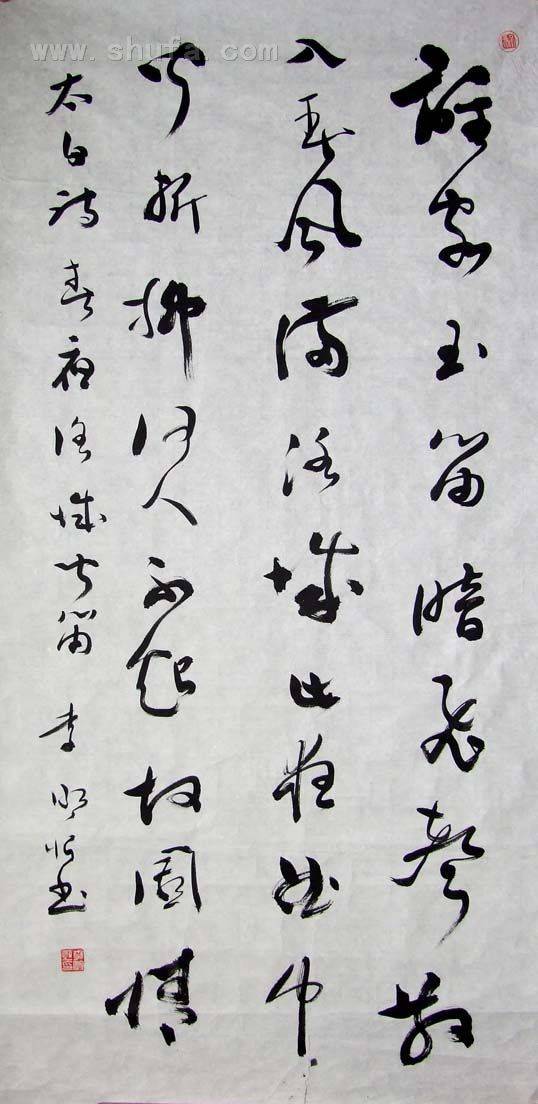 www.shufa.com
誰家玉笛暗飛聲散
入春風滿洛城此夜曲中
聞折柳何人不起故園情
太白詩 春夜洛城聞笛 李明書